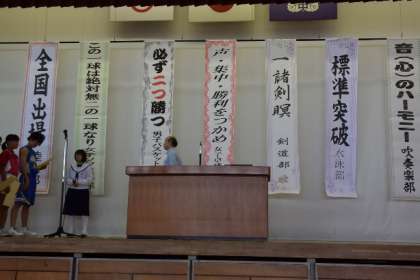 全国出場
この一球は絶対無二の一球なり
必ず二つ勝つ
男子バスケット
古・集中・勝利をつかめ
女子
一諸剣瞑
剣道部
標準突破
水泳部
音(心)のハーモニー
吹奏楽部